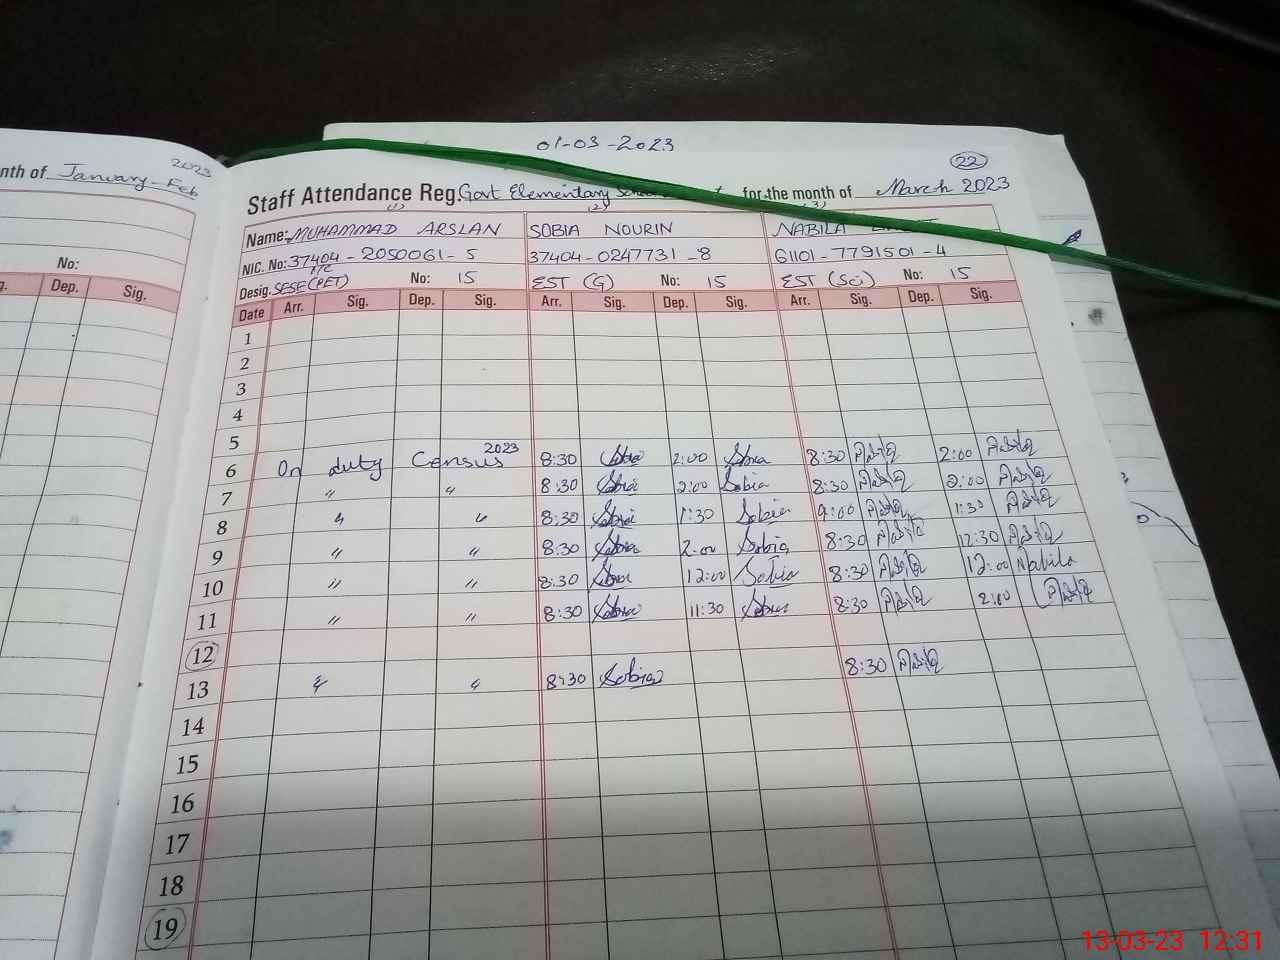 01-03-2023
2023
nth of January-Feb
22
Staff Attendance Reg. Govt Elementary for the month of March 2023
(1) (2) (3)
Name: MUHAMMAD ARSLAN SOBIA NOURIN NABILA
NIC. No: 37404-2050061-5 37404-0247731-8 61101-7791501-4
No:
Desig. SESE (PET) No: 15 EST (G) No: 15 EST (Sci) No: 15
Dep. Sig.
Date Arr. Sig. Dep. Sig. Arr. Sig. Dep. Sig. Arr. Sig. Dep. Sig.
1
2
3
4
5
6 On duty Census 2023 8:30 Sobia 2:00 Sobia 8:30 2:00
7 〃 〃 8:30 Sobia 2:00 Sobia 8:30 2:00
8 〃 〃 8:30 Sobia 1:30 Sobia 9:00 1:30
9 〃 〃 8:30 Sobia 2:00 Sobia 8:30 12:30
10 〃 〃 8:30 Sobia 12:00 Sobia 8:30 12:00 Nabila
11 〃 〃 8:30 Sobia 11:30 Sobia 8:30 2:00
12
13 〃 〃 8:30 Sobia 8:30
14
15
16
17
18
19
13-03-23 12:31